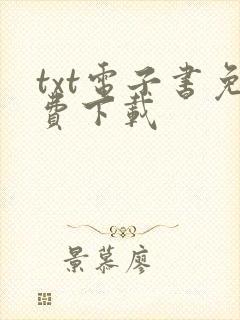 txt電子書免
費下載
景慕廖